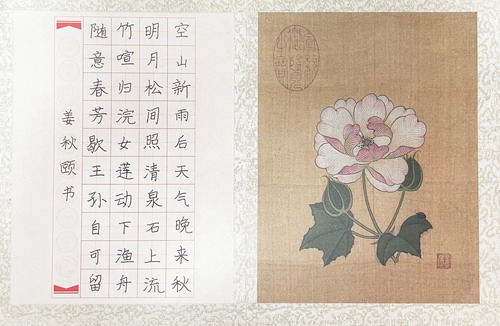 空山新雨后天气晚来秋
明月松间照清泉石上流
竹喧归浣女莲动下渔舟
随意春芳歇王孙自可留
姜秋颐书